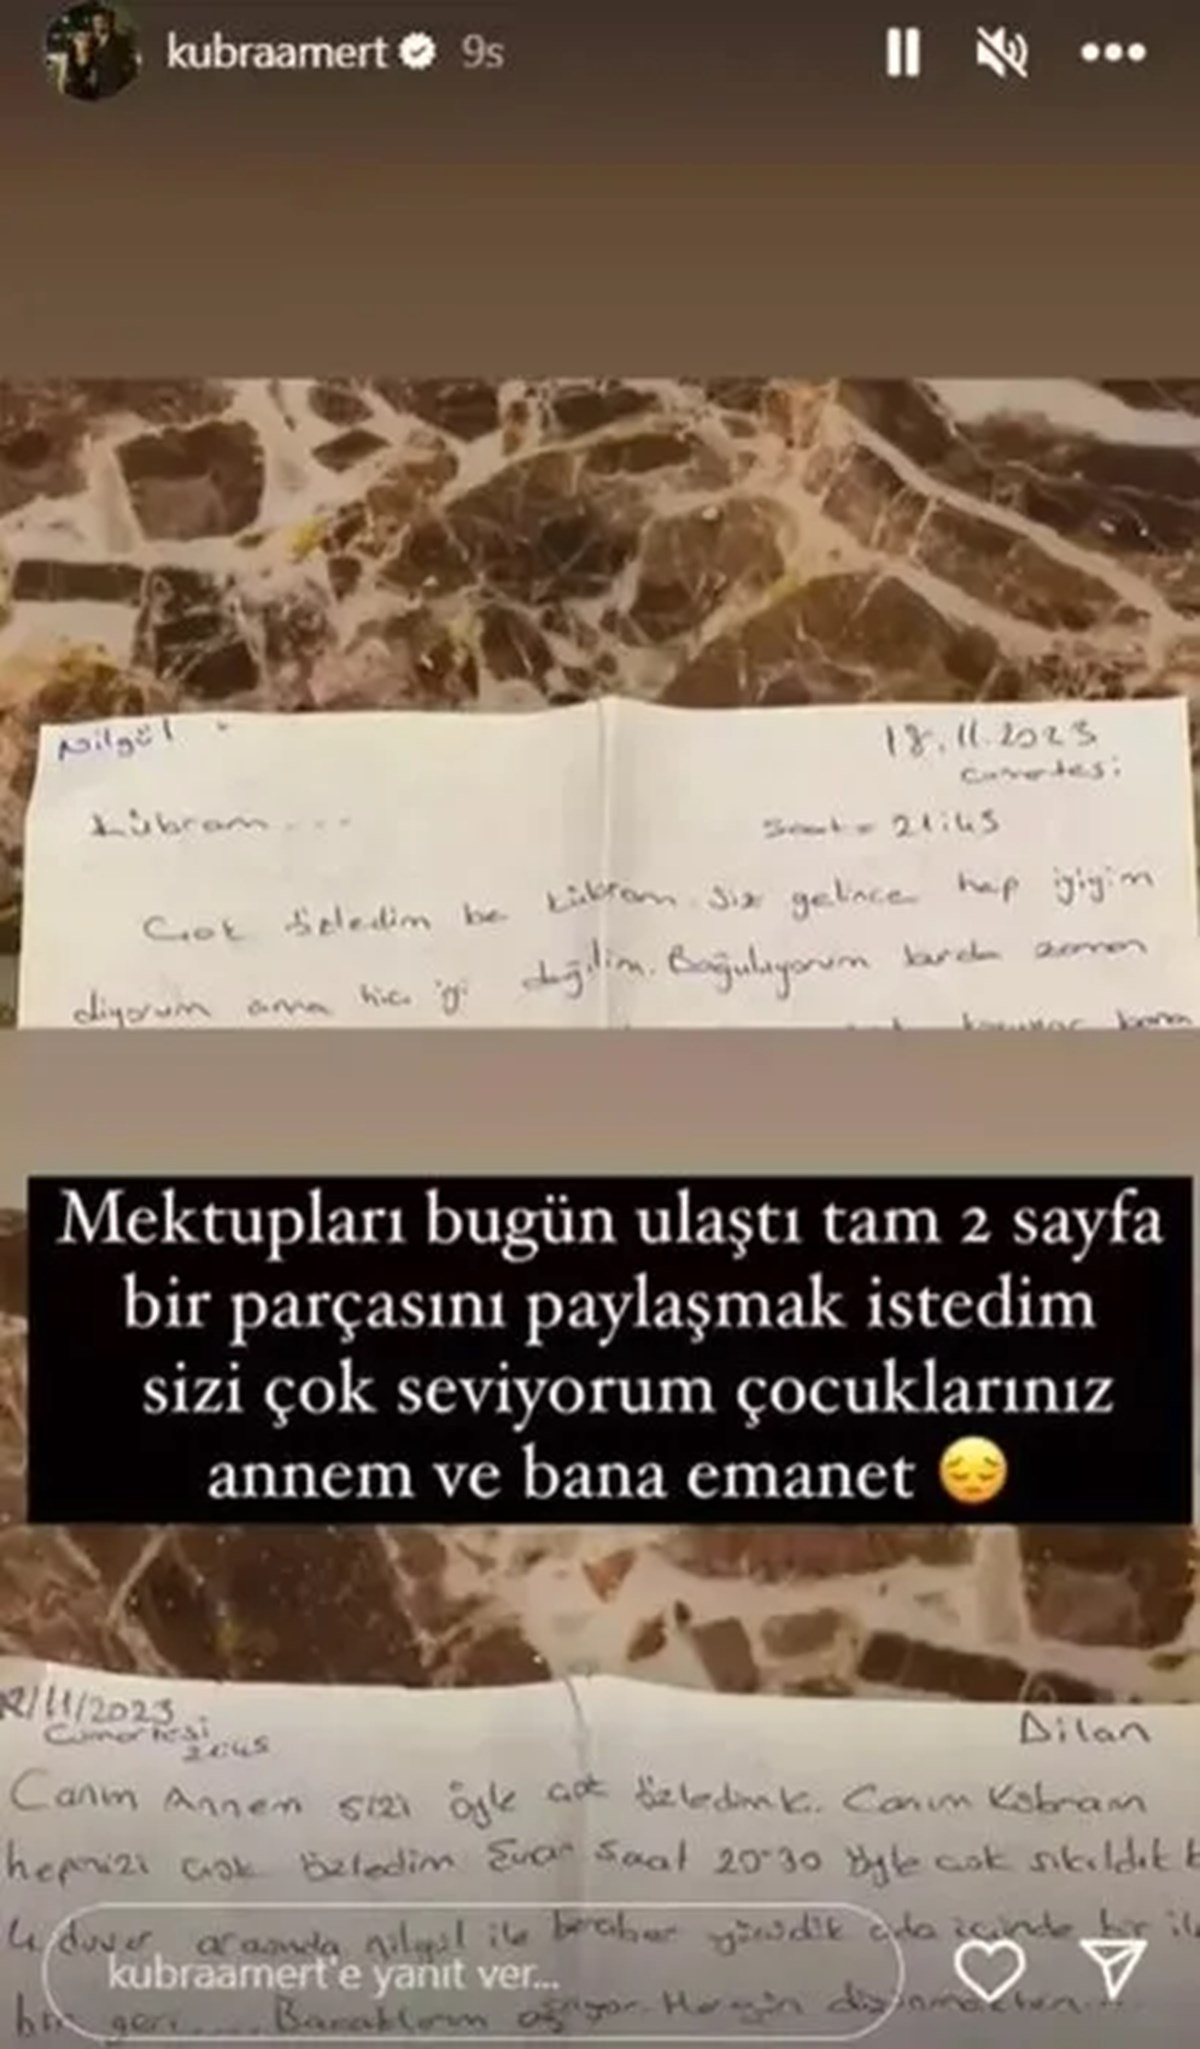 kubraamert 9s
Nilgül
18.11.2023
Cumartesi
Kübram...
Saat = 21:45
Çok özledim be Kübram. Siz gelince hep iyiyim
diyorum ama hiç iyi değilim. Boğuluyorum burda zaman
Mektupları bugün ulaştı tam 2 sayfa
bir parçasını paylaşmak istedim
sizi çok seviyorum çocuklarınız
annem ve bana emanet 😔
/11/2023
Cumartesi
21:45
Dilan
Canım Annem sizi öyle çok özledimki. Canım Kübram
hepinizi çok özledim Şuan Saat 20:30 öyle çok sıkıldık
4 duvar arasında nilgül ile beraber yürüdük oda içinde bir
kubraamert'e yanıt ver...
bir geri.... Bacaklarım ağrıyor. Hergün düşünmekten...